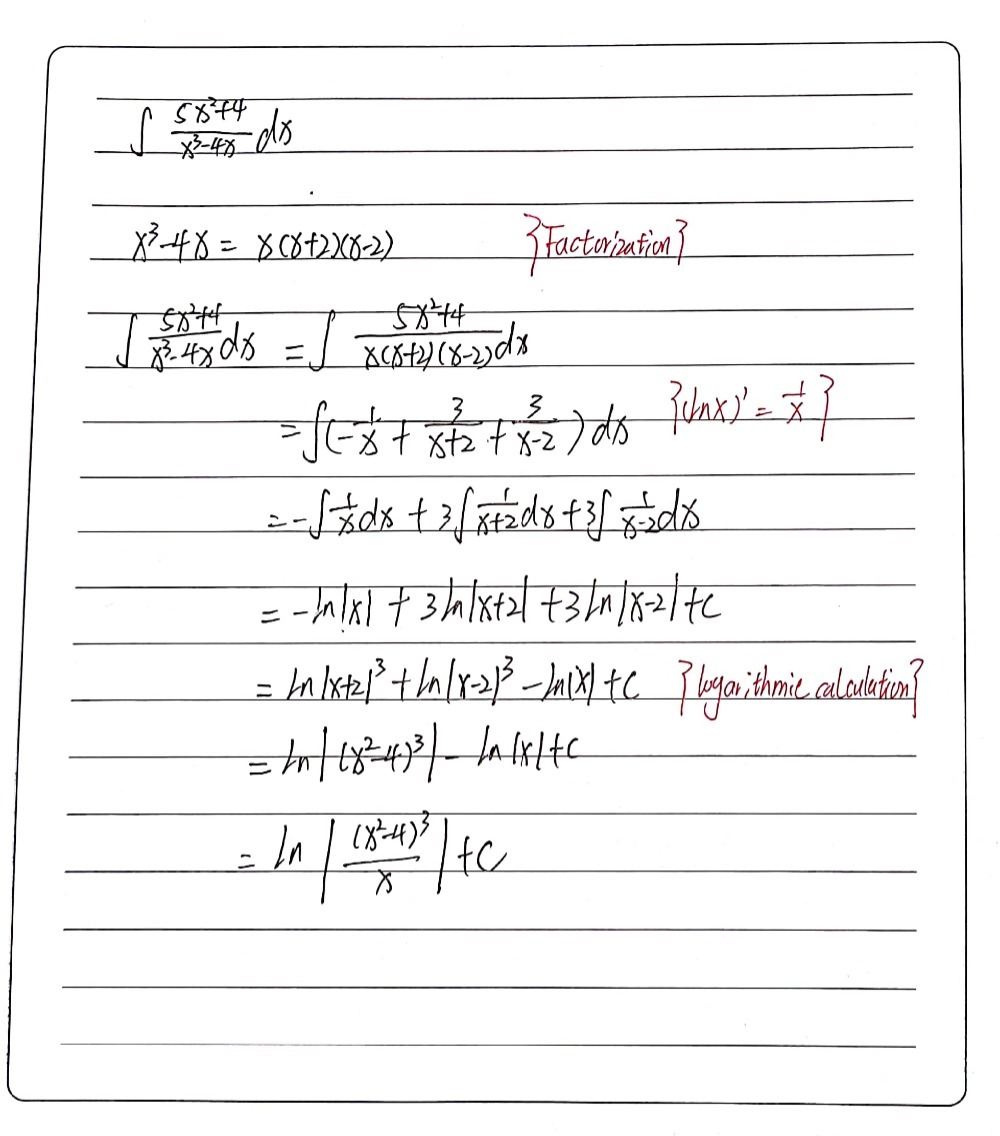 ∫ (5x²+4)/(x³-4x) dx
x³-4x = x(x+2)(x-2) {Factorization}
∫ (5x²+4)/(x³-4x) dx = ∫ (5x²+4)/(x(x+2)(x-2)) dx
= ∫(-1/x + 3/(x+2) + 3/(x-2)) dx {(lnx)' = 1/x}
= -∫ 1/x dx + 3∫ 1/(x+2) dx + 3∫ 1/(x-2) dx
= -ln|x| + 3ln|x+2| + 3ln|x-2| + C
= ln|x+2|³ + ln|x-2|³ - ln|x| + C {logarithmic calculation}
= ln|(x²-4)³| - ln|x| + C
= ln|(x²-4)³/x| + C